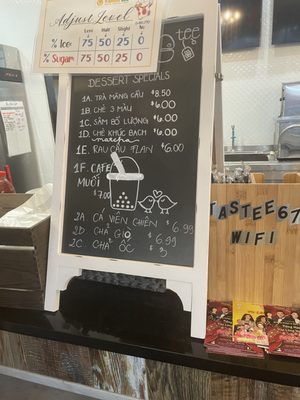 Adjust Level
Less Half Slight Free
% Ice 75 50 25 0
% Sugar 75 50 25 0
tee
DESSERT SPECIALS
1A. TRÀ MÃNG CẦU $8.50
1B. CHÈ 3 MÀU $6.00
1C. SÂM BỔ LƯỢNG $6.00
1D. CHÈ KHÚC BẠCH $6.00
matcha
1E. RAU CÂU FLAN $6.00
1F. CAFE
MUỐI
$7.00
2A CÁ VIÊN CHIÊN $6.99
2D CHẢ GIÒ $6.99
2C CHẢ ỐC $
TASTEE67
WIFI